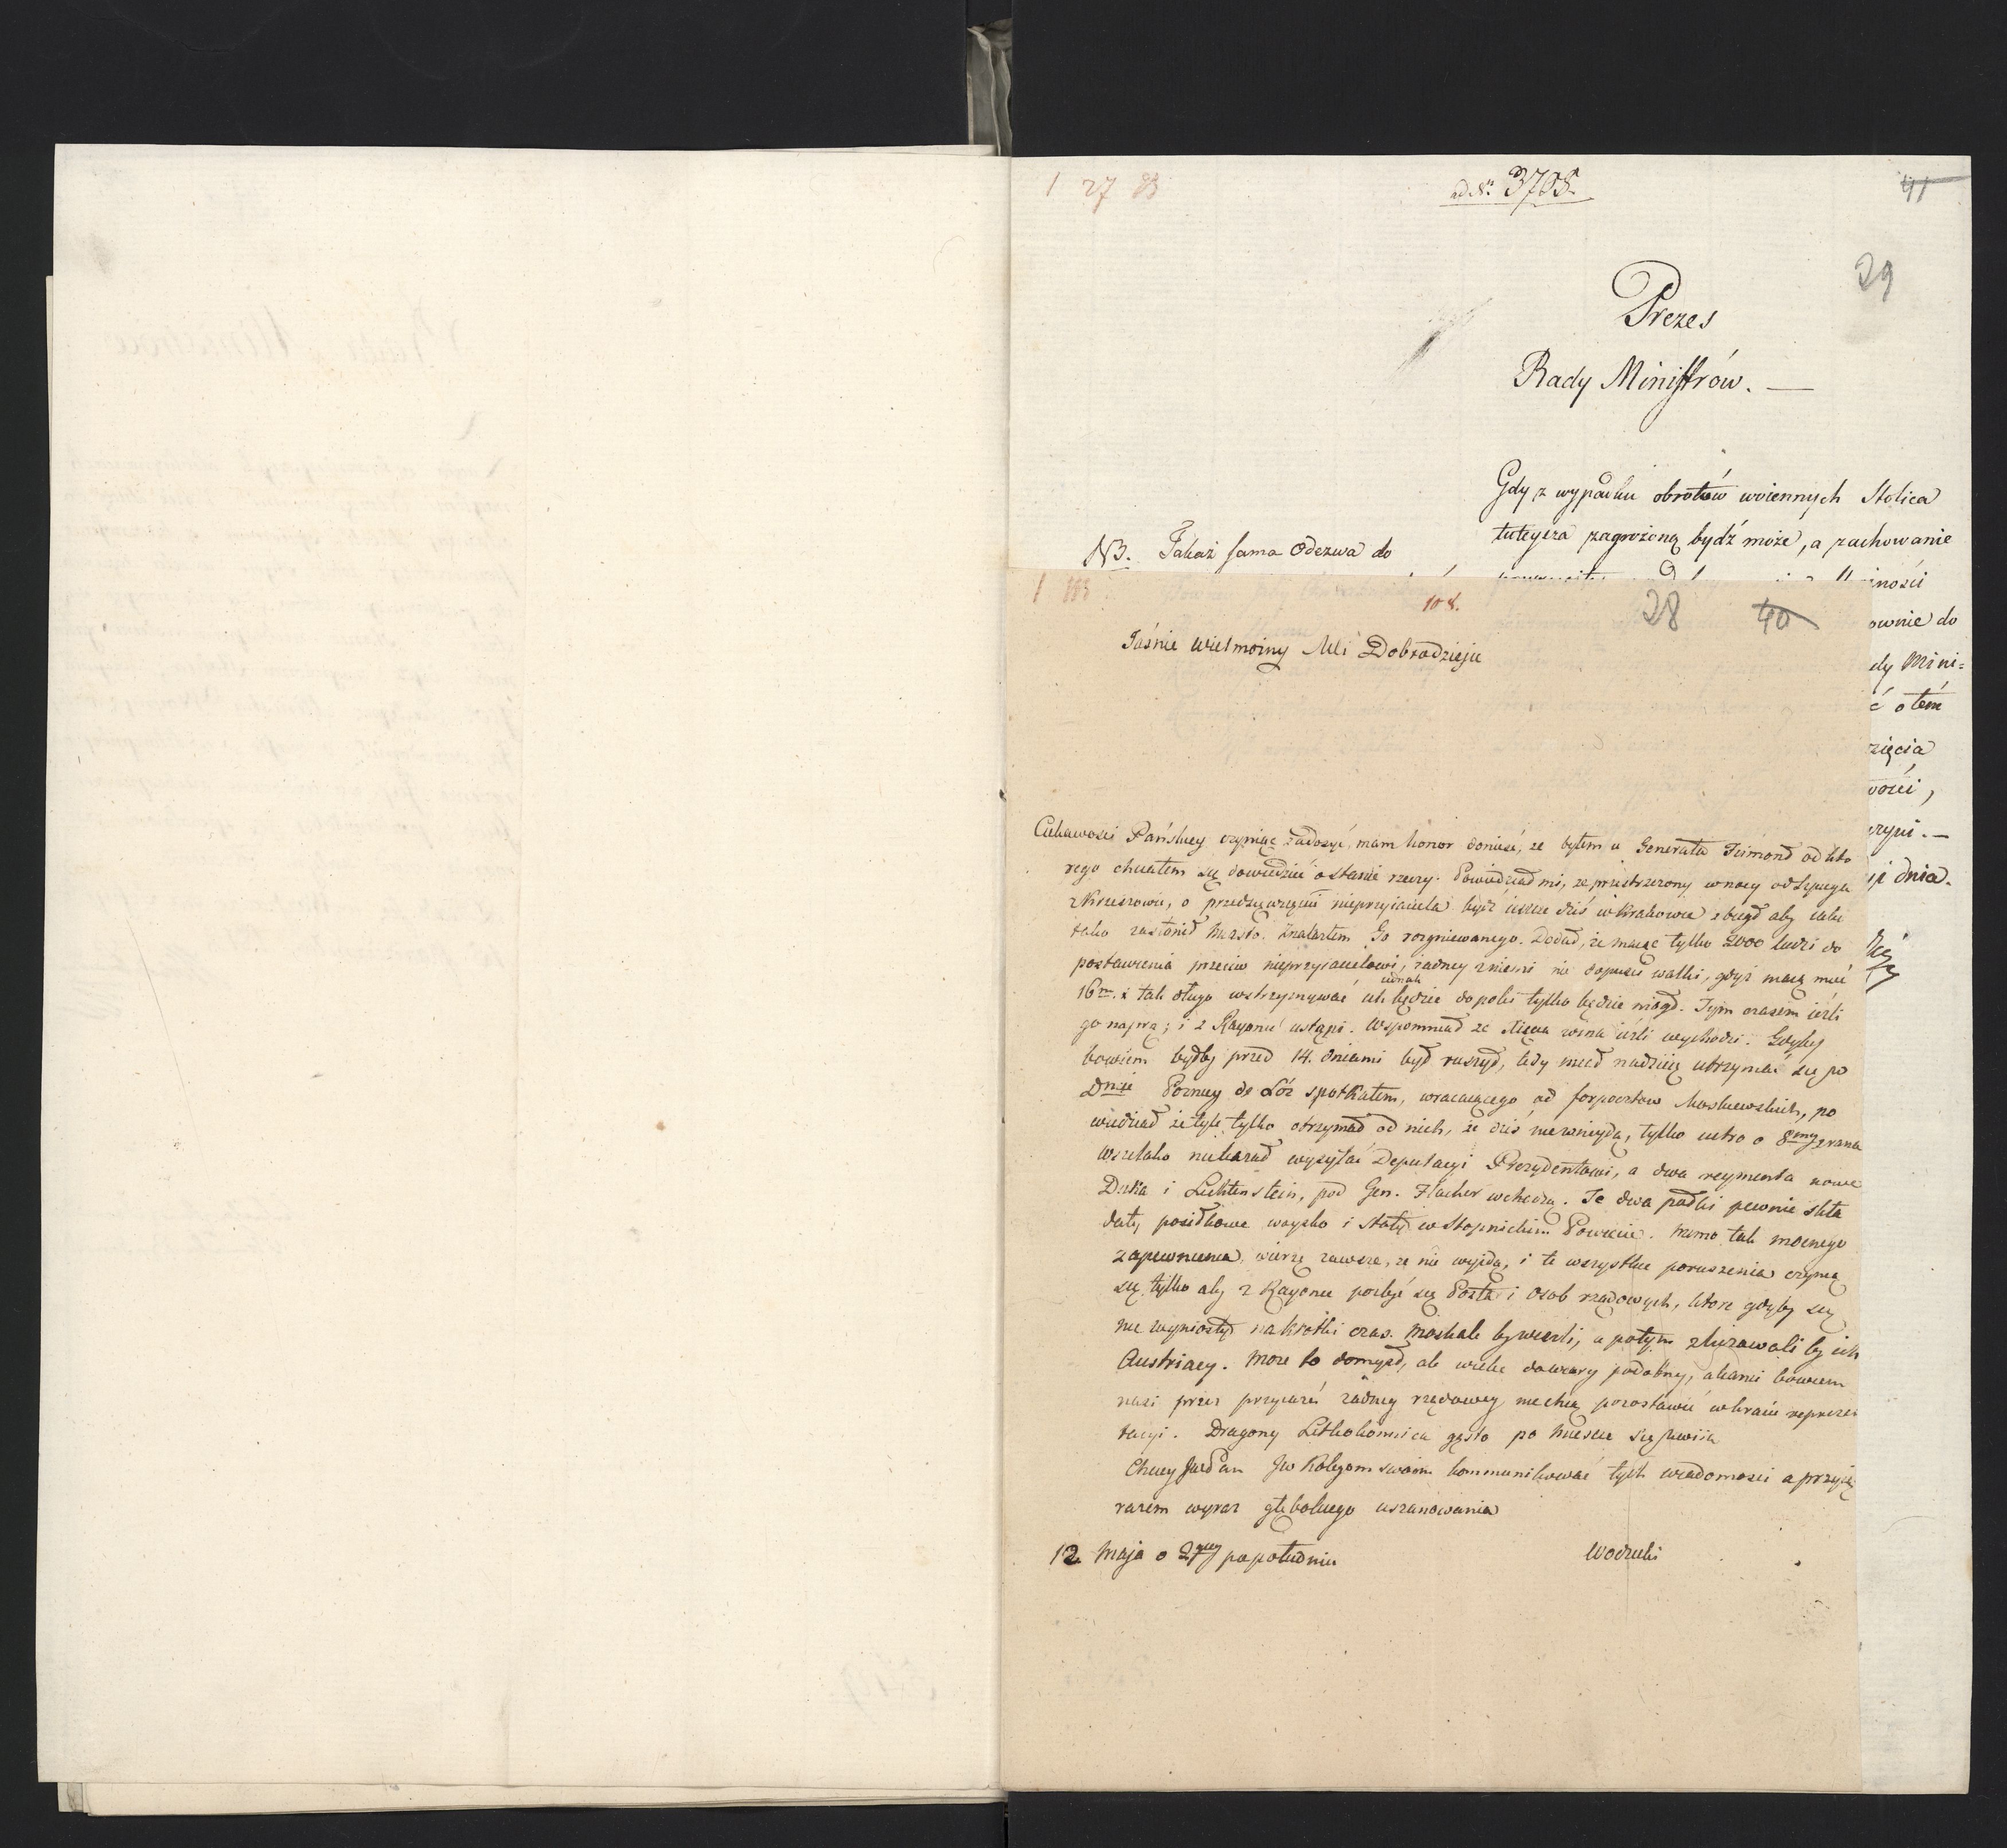 1 27 83
ad N° 3705.
41
29
Prezes
Rady Ministrów. —
Gdy z wypadku obrotów woiennych Stolica
tuteysza zagrożoną bydź może, a zachowanie
NB. Takaż sama Odezwa do
iności
ownie do
dy Mini=
ć o tém
zięcia
ności,
dnia.
1
108.
28 40
Jaśnie Wielmożny Mći Dobrodzieju
Ciekawości Pańskiey czyniąc zadosyć, mam honor donieść, że byłem u Generała Frimond od któ
rego chciałem się dowiedzieć o stanie rzeczy. Powiedział mi, że przestrzeżony w nocy od Szpiega
z Krzeszowic, o przedsięwzięciu nieprzyiaciela bydź ieszcze dziś w Krakowie zbiegł aby iako
tako zasłonił miasto. Znalazłem Go rozgniewanego. Dodał, że maiąc tylko 2000 ludzi do
postawienia przeciw nieprzyiacielowi, żadney z niemi nie dopuści walki, gdyż maią mieć
16m. i tak długo wstrzymywać ich iednak będzie dopoki tylko będzie mógł. Tym czasem ieśli
go naprą; i z Rayonu ustąpi. Wspomniał że Xięcia wina ieśli wychodzi. Gdyby
bowiem byłby przed 14. dniami był ruszył, tedy miał nadzieię utrzymać się po
Dnie Pozney de Lór spotkałem, wracaiącego od forpocztow Moskiewskich, po
wiedział że tyle tylko otrzymał od nich, że dziś nie wniydą, tylko iutro o 8mey z rana
wszelako nie kazał wysyłać Deputacyi Prezydentowi, a dwa regimenta nowe
Duka i Lichtenstein, pod Gen. Flacher wchodzą. Te dwa pułki pewnie skła
dały posiłkowe woysko i stały w Stopnickim Powiecie. Mimo tak mocnego
zapewnienia, wierzę zawsze, że nie wyjdą, i te wszystkie poruszenia czynią
się tylko aby z Rayonu pozbyć się Posta i osob rządowych, które gdyby się
nie wyniosły na krótki czas. Moskale by wzieli, a potym zbierawali by ich
Austriacy. Może to domysł, ale wielce do wiary podobny, alianci bowiem
nasi przez przyiaźń żadney rządowey nie chcą pozostawić w kraiu reprezen
tacyi. Dragony Letkokonnica gęsto po mieście się uwiia
Chciey JWPan JW Kolegom swoim kommunikować tych wiadomości a przyiąć
razem wyraz głębokiego uszanowania
12 Maja o 2giey popołudniu
Wodzicki